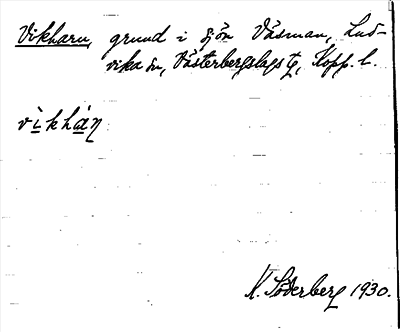 Vikharn, grund i sjön Väsman, Lud-
vika sn, Västerbergslags tg, Kopp. l.
vikhàn
K. Söderberg 1930.